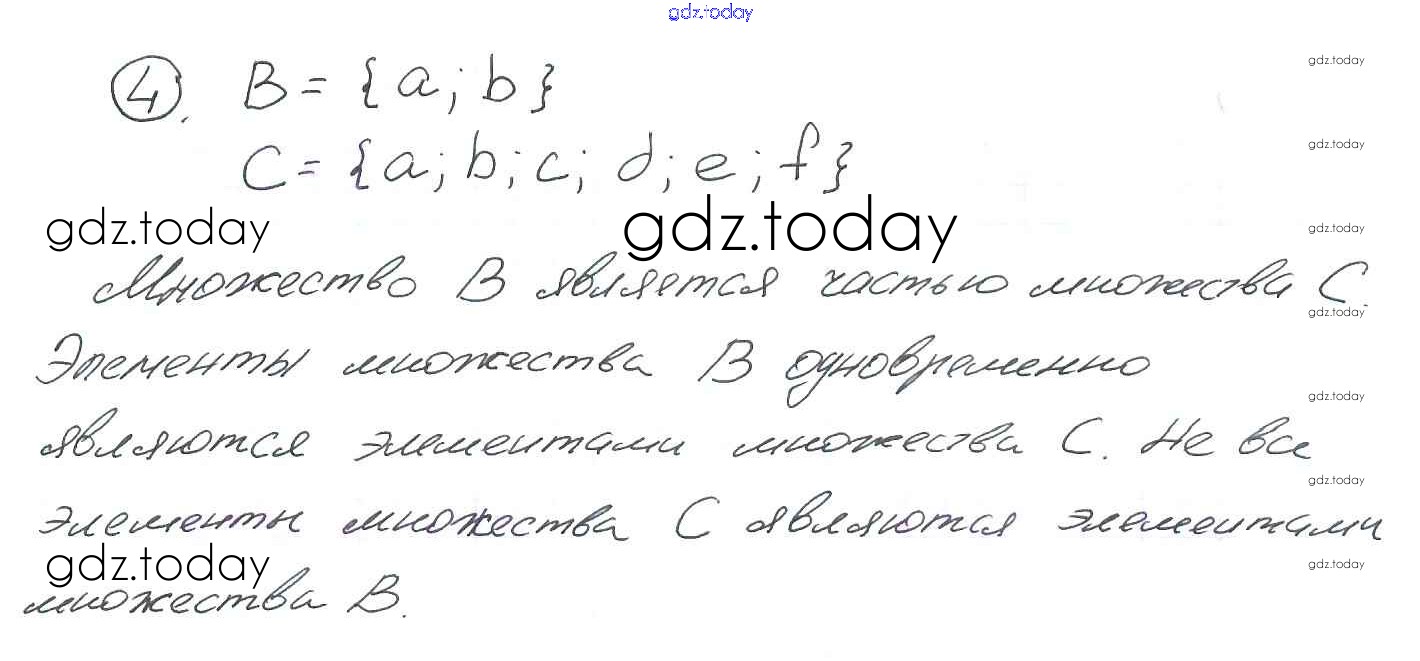 gdz.today
④. B = {a; b}
gdz.today
C = {a; b; c; d; e; f}
gdz.today
gdz.today gdz.today
gdz.today
Множество B является частью множества C.
gdz.today
Элементы множества B одновременно
gdz.today
являются элементами множества C. Не все
gdz.today
элементы множества C являются элементами
gdz.today
gdz.today
множества B.